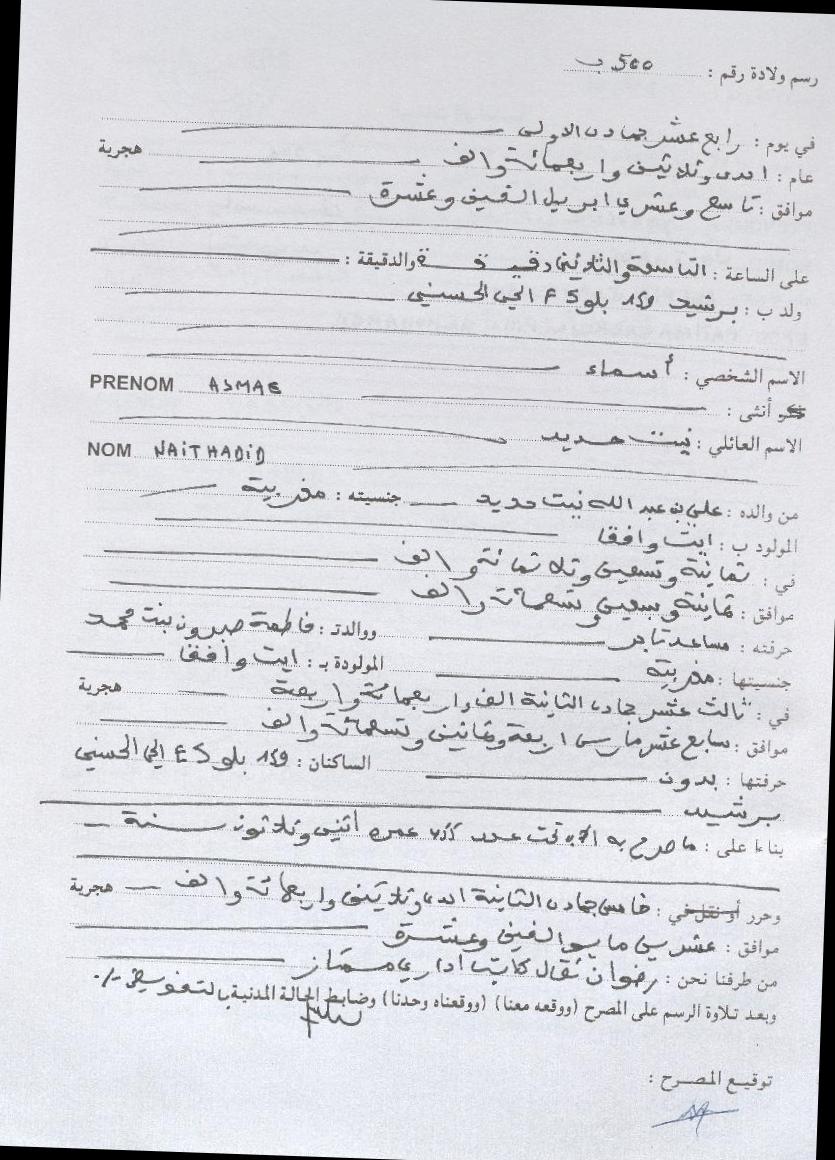 رسم ولادة رقم : 500 ب
في يوم : رابع عشر جمادى الاولى
عام : احدى وثلاثين واربعمائة والف هجرية
موافق : تاسع وعشري ابريل الفين وعشرة
على الساعة : التاسعة والثلاثين دقيقة والدقيقة :
ولد ب : برشيد 159 بلوك E5 الحي الحسني
الاسم الشخصي : أسماء
PRENOM ASMAE
ذكر أو أنثى :
الاسم العائلي : نيت حديد
NOM NAITHADID
من والده : علي بن عبد الله نيت حديد جنسيته : مغربية
المولود ب : ايت وافقا
في : ثمانية وتسعين وثلاثمائة والف
موافق : ثمانية وسبعين وتسعمائة والف
حرفته : مساعد تاجر ووالدتـ : فاطمة صبرون بنت محمد
جنسيتها : مغربية المولودة بـ : ايت وافقا
في : ثالث عشر جمادى الثانية الف واربعمائة واربعة هجرية
موافق : سابع عشر مارس اربعة وثمانين وتسعمائة والف
حرفتها : بدون الساكنان : 159 بلوك E5 الحي الحسني
برشيد
بناءا على : ما صرح به الاب تحت عدد عمره اثنين وثلاثون سنة
وحرر أو نقل في : خامس جمادى الثانية احدى وثلاثين واربعمائة والف هجرية
موافق : عشرين مايو الفين وعشرة
من طرفنا نحن : رضوان نقال كاتب اداري ممتاز
وبعد تلاوة الرسم على المصرح (ووقعه معنا) (ووقعناه وحدنا) وضابط الحالة المدنية بالتفويض
توقيع المصرح :